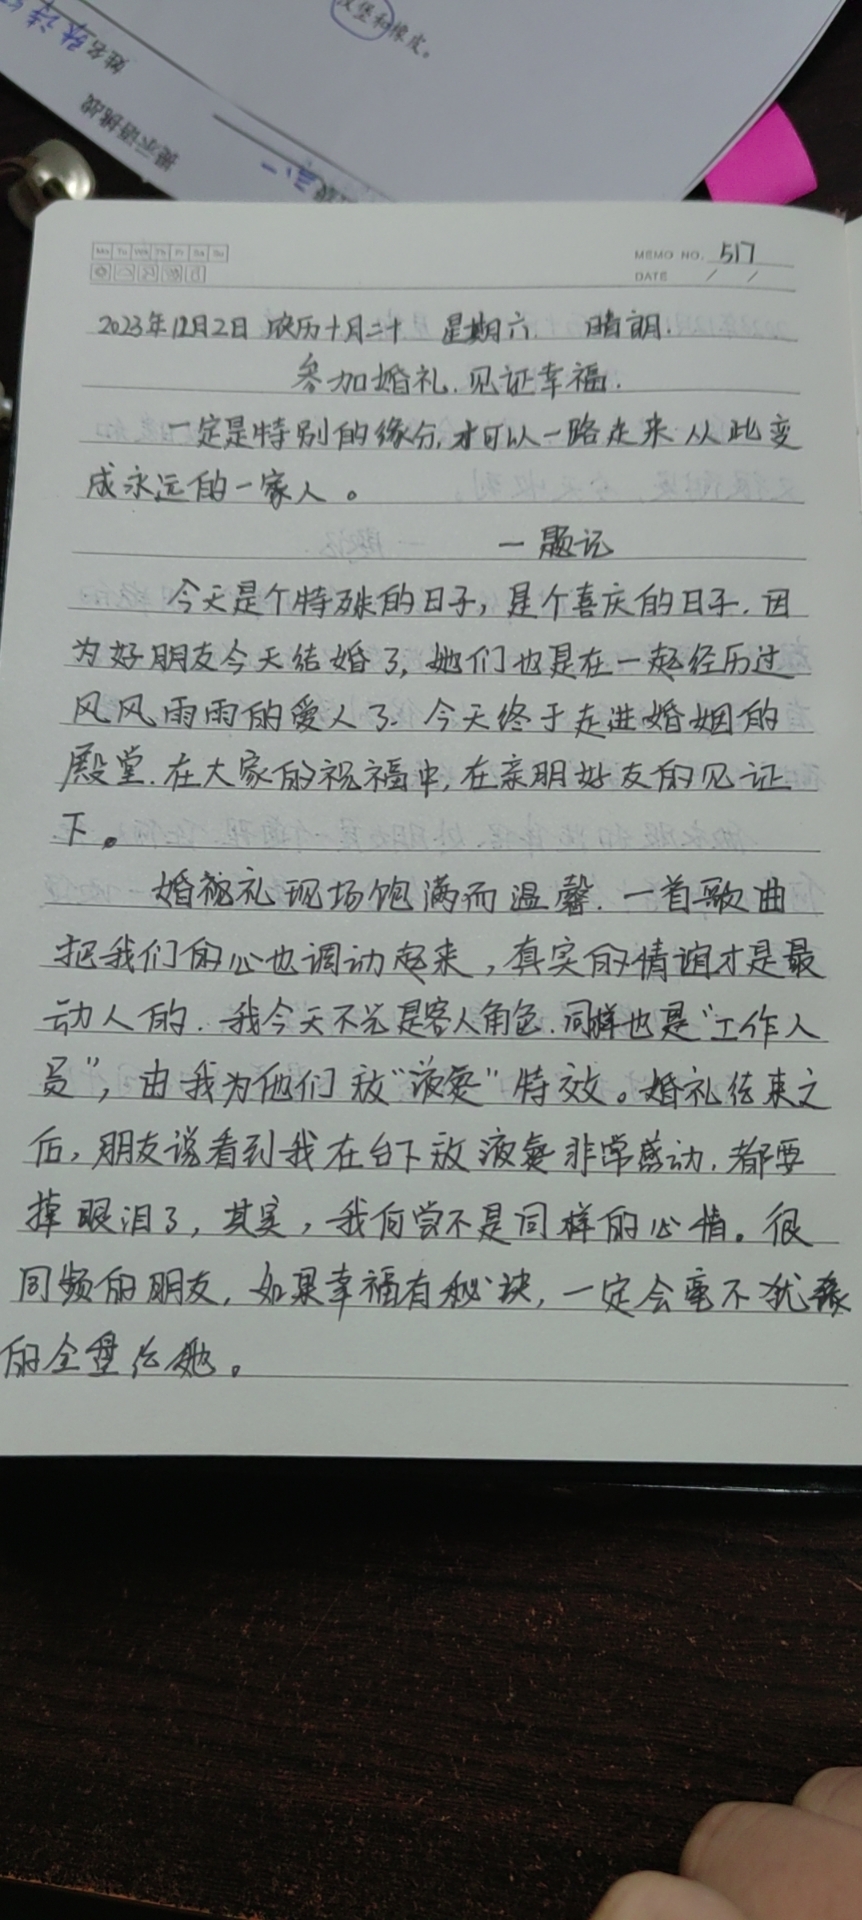 汉堡和橡皮。
姓名
提示语挑战
Mo Tu We Th Fr Sa Su
MEMO NO. 517
DATE / /
2023年12月2日 农历十月二十 星期六. 晴朗.
参加婚礼.见证幸福.
一定是特别的缘分,才可以一路走来从此变
成永远的一家人。
一题记
今天是个特殊的日子,是个喜庆的日子.因
为好朋友今天结婚了,她们也是在一起经历过
风风雨雨的爱人了.今天终于走进婚姻的
殿堂.在大家的祝福中,在亲朋好友的见证
下。
婚礼现场饱满而温馨.一首歌曲
把我们的心也调动起来,真实的情谊才是最
动人的.我今天不光是客人角色.同样也是“工作人
员”,由我为他们放“液氮”特效。婚礼结束之
后,朋友说看到我在台下放液氮非常感动.都要
掉眼泪了,其实,我何尝不是同样的心情。很
同频的朋友,如果幸福有秘诀,一定会毫不犹豫
的全盘给她。